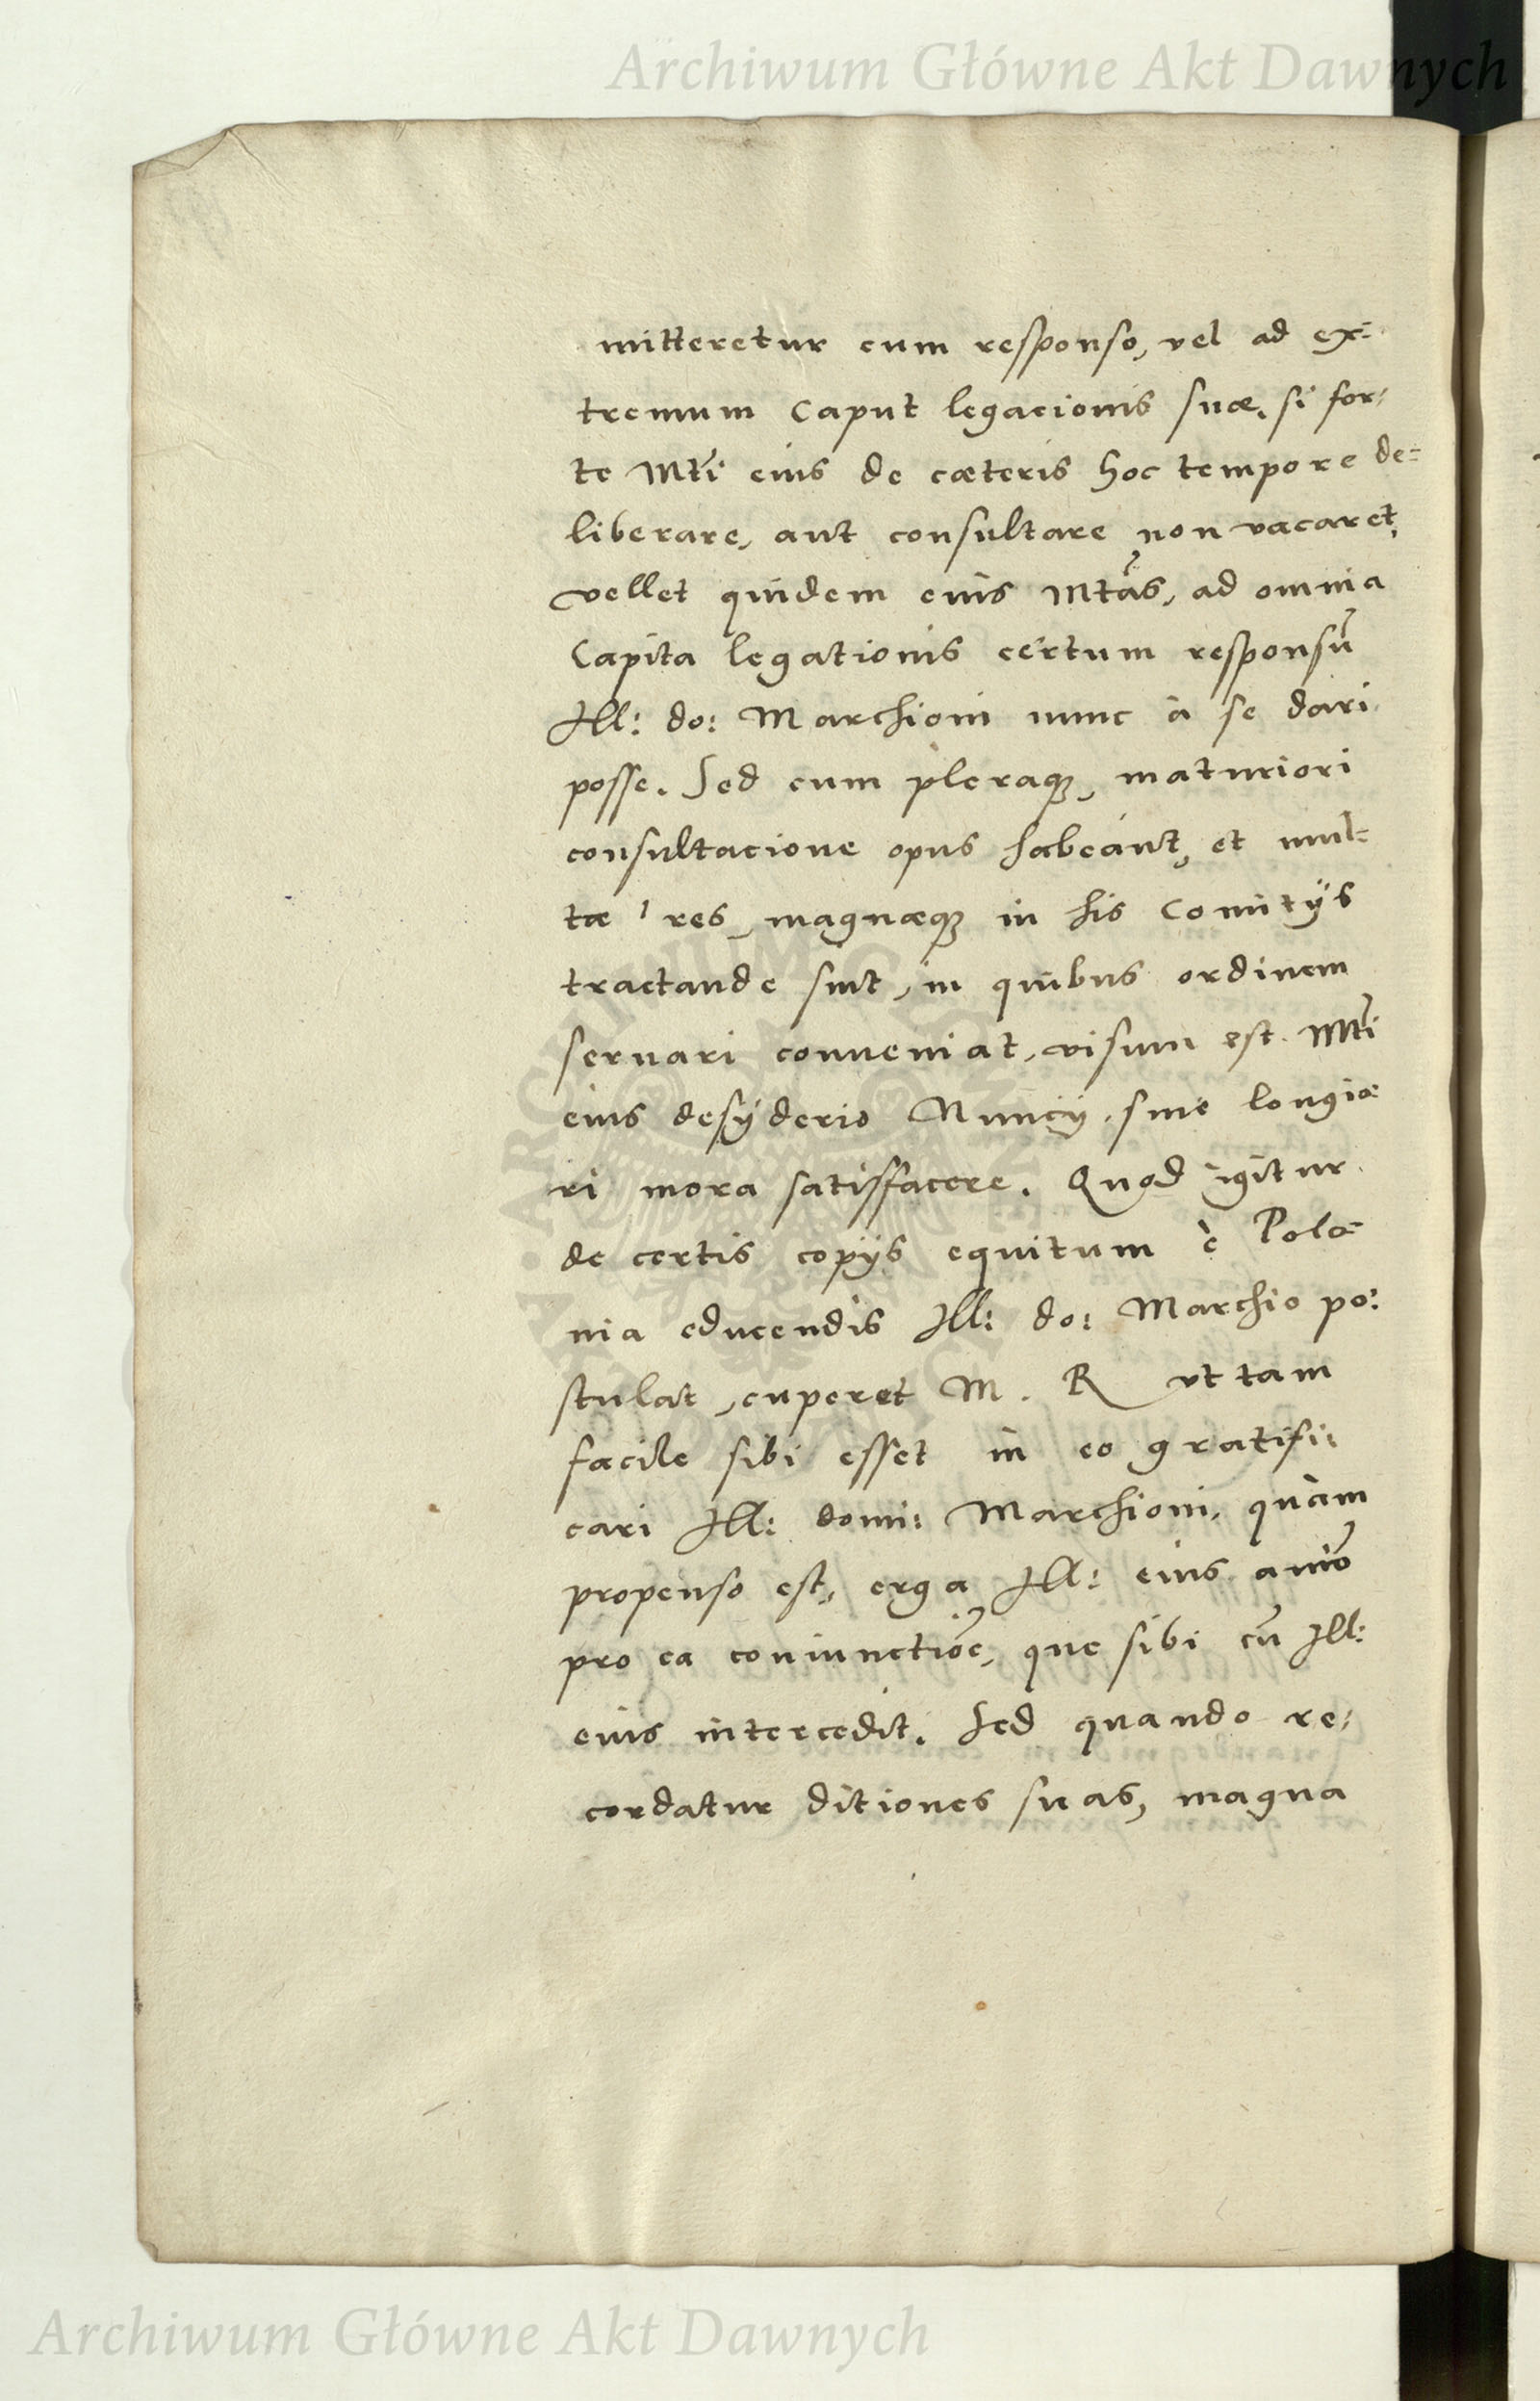 Archiwum Główne Akt Dawnych
mitteretur cum responso, vel ad ex=
tremum Caput legacionis suæ, si for=
te Mti eius de cæteris hoc tempore de=
liberare, aut consultare non vacaret,
vellet quidem eius Mtas, ad omnia
Capita legationis certum responsū
Ill: do: Marchioni nunc à se dari
posse. Sed cum pleraqꝫ, maturiori
consultacione opus habeant, et mul=
tæ res, magnæqꝫ in his Comitÿs
tractande sint, in quibus ordinem
seruari conueniat, visum est Mti
eius desÿderio Nuncÿ, sine longio
ri mora satisffacere. Quod igitur
de certis copÿs equitum è Polo
nia educendis Ill: do: Marchio po:
stulat, cuperet M. R vt tam
facile sibi esset in eo gratifi:
cari Ill: domi: Marchioni, quàm
propenso est, erga Ill: eius aīo
pro ea coniunctiōe, que sibi cū Ill:
eius intercedit. Sed quando re:
cordatur ditiones suas, magna
Archiwum Główne Akt Dawnych